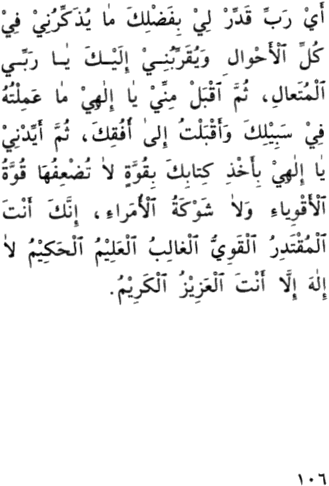 أَيْ رَبِّ قَدِّرْ لِيْ بِفَضْلِكَ مٰا يُذَكِّرُنِيْ فِيْ
كُلِّ ٱلْأَحْوالِ وَيُقَرِّبُنِيْ إِلَيْكَ يٰا رَبِّي
ٱلْمُتَعالِ، ثُمَّ ٱقْبَلْ مِنِّيْ يٰا إِلٰهِيْ ما عَمِلْتُهُ
فِي سَبِيْلِكَ وَأَقْبَلْتُ إِلىٰ أُفُقِكَ، ثُمَّ أَيِّدْنِيْ
يٰا إِلٰهِيْ بِأَخْذِ كِتابِكَ بِقُوَّةٍ لاٰ تُضْعِفُهٰا قُوَّةُ
ٱلْأَقْوِياءِ وَلاٰ شَوْكَةُ ٱلْأُمَراءِ، إِنَّكَ أَنْتَ
ٱلْمُقْتَدِرُ ٱلْقَوِيُّ ٱلْغالِبُ ٱلْعَلِيْمُ ٱلْحَكِيْمُ لاٰ
إِلٰهَ إِلَّا أَنْتَ ٱلْعَزِيْزُ ٱلْكَرِيْمُ.
١٠٦